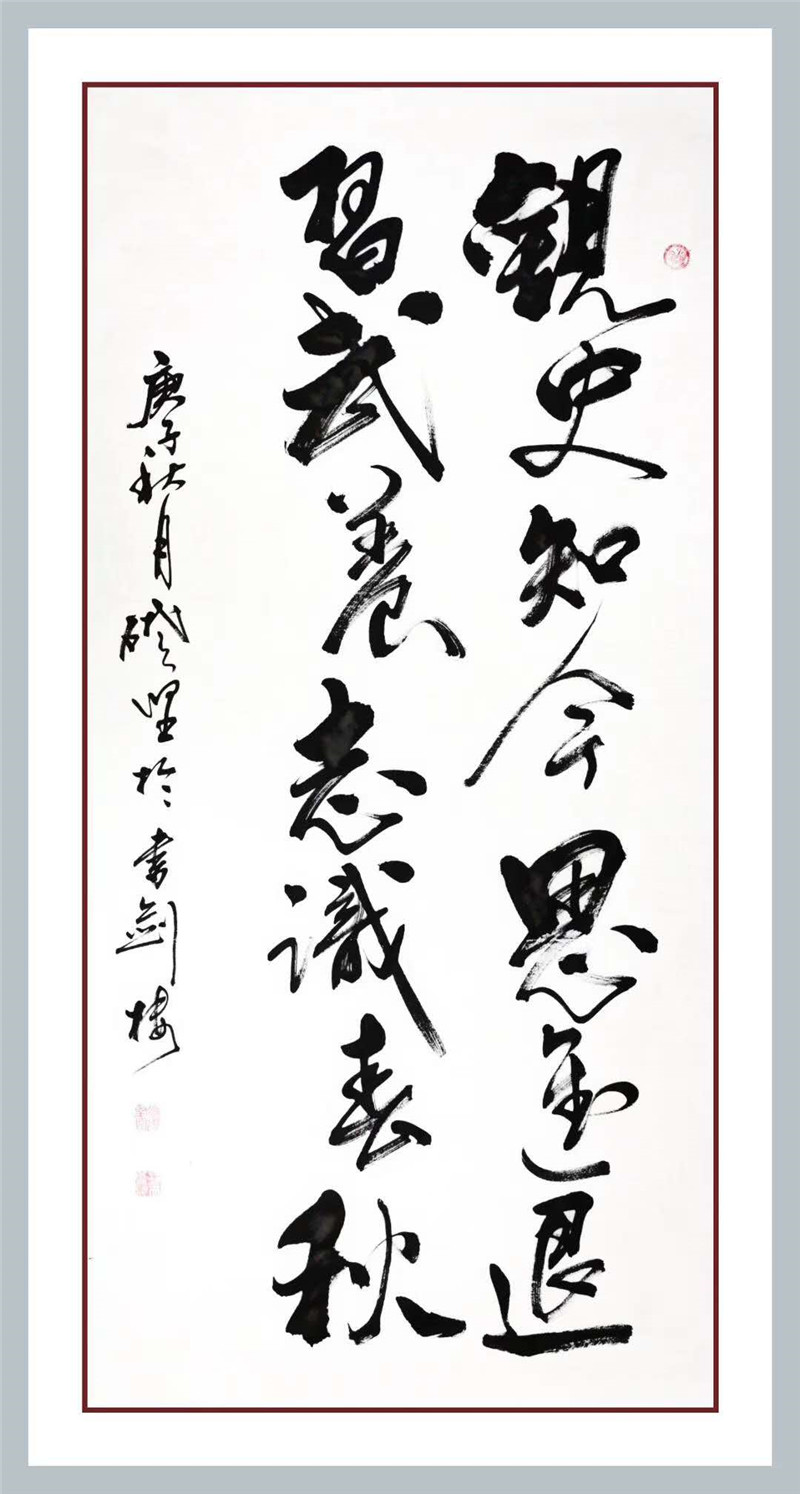 觀史知今思進退
習武養志識春秋
庚子秋月 坚於書劍楼